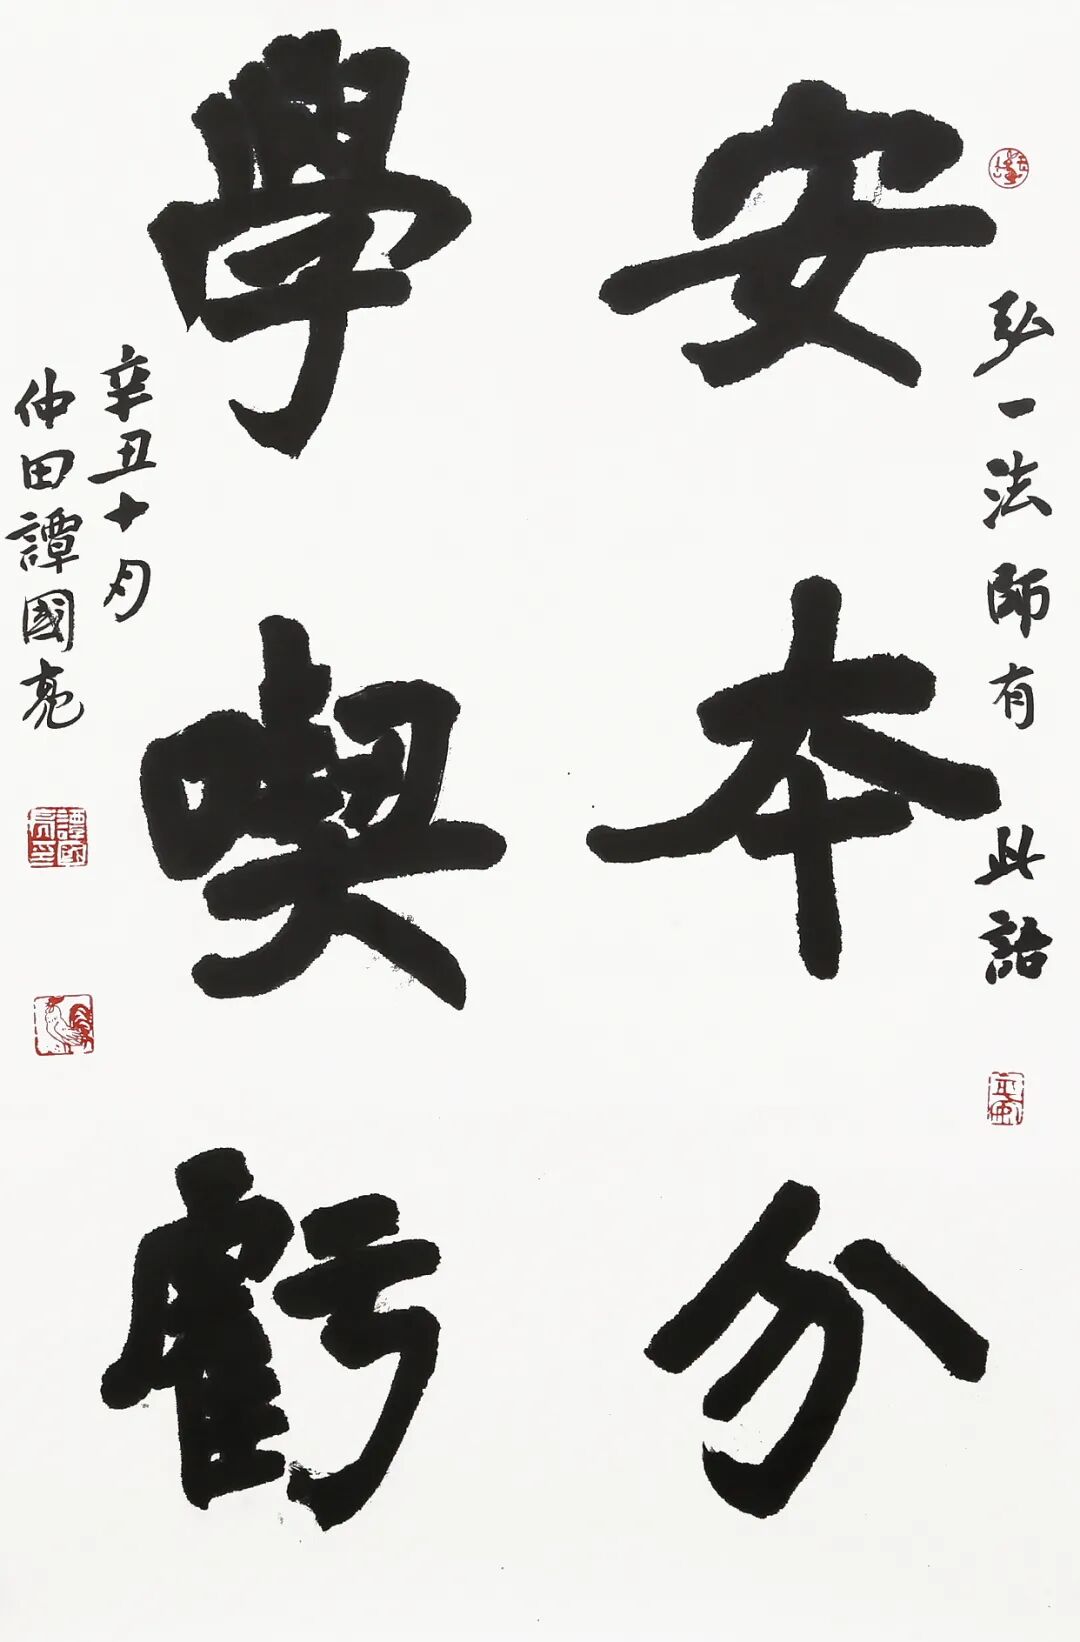 弘一法師有此語
安本分
學喫虧
辛丑十月
仲田譚國亮